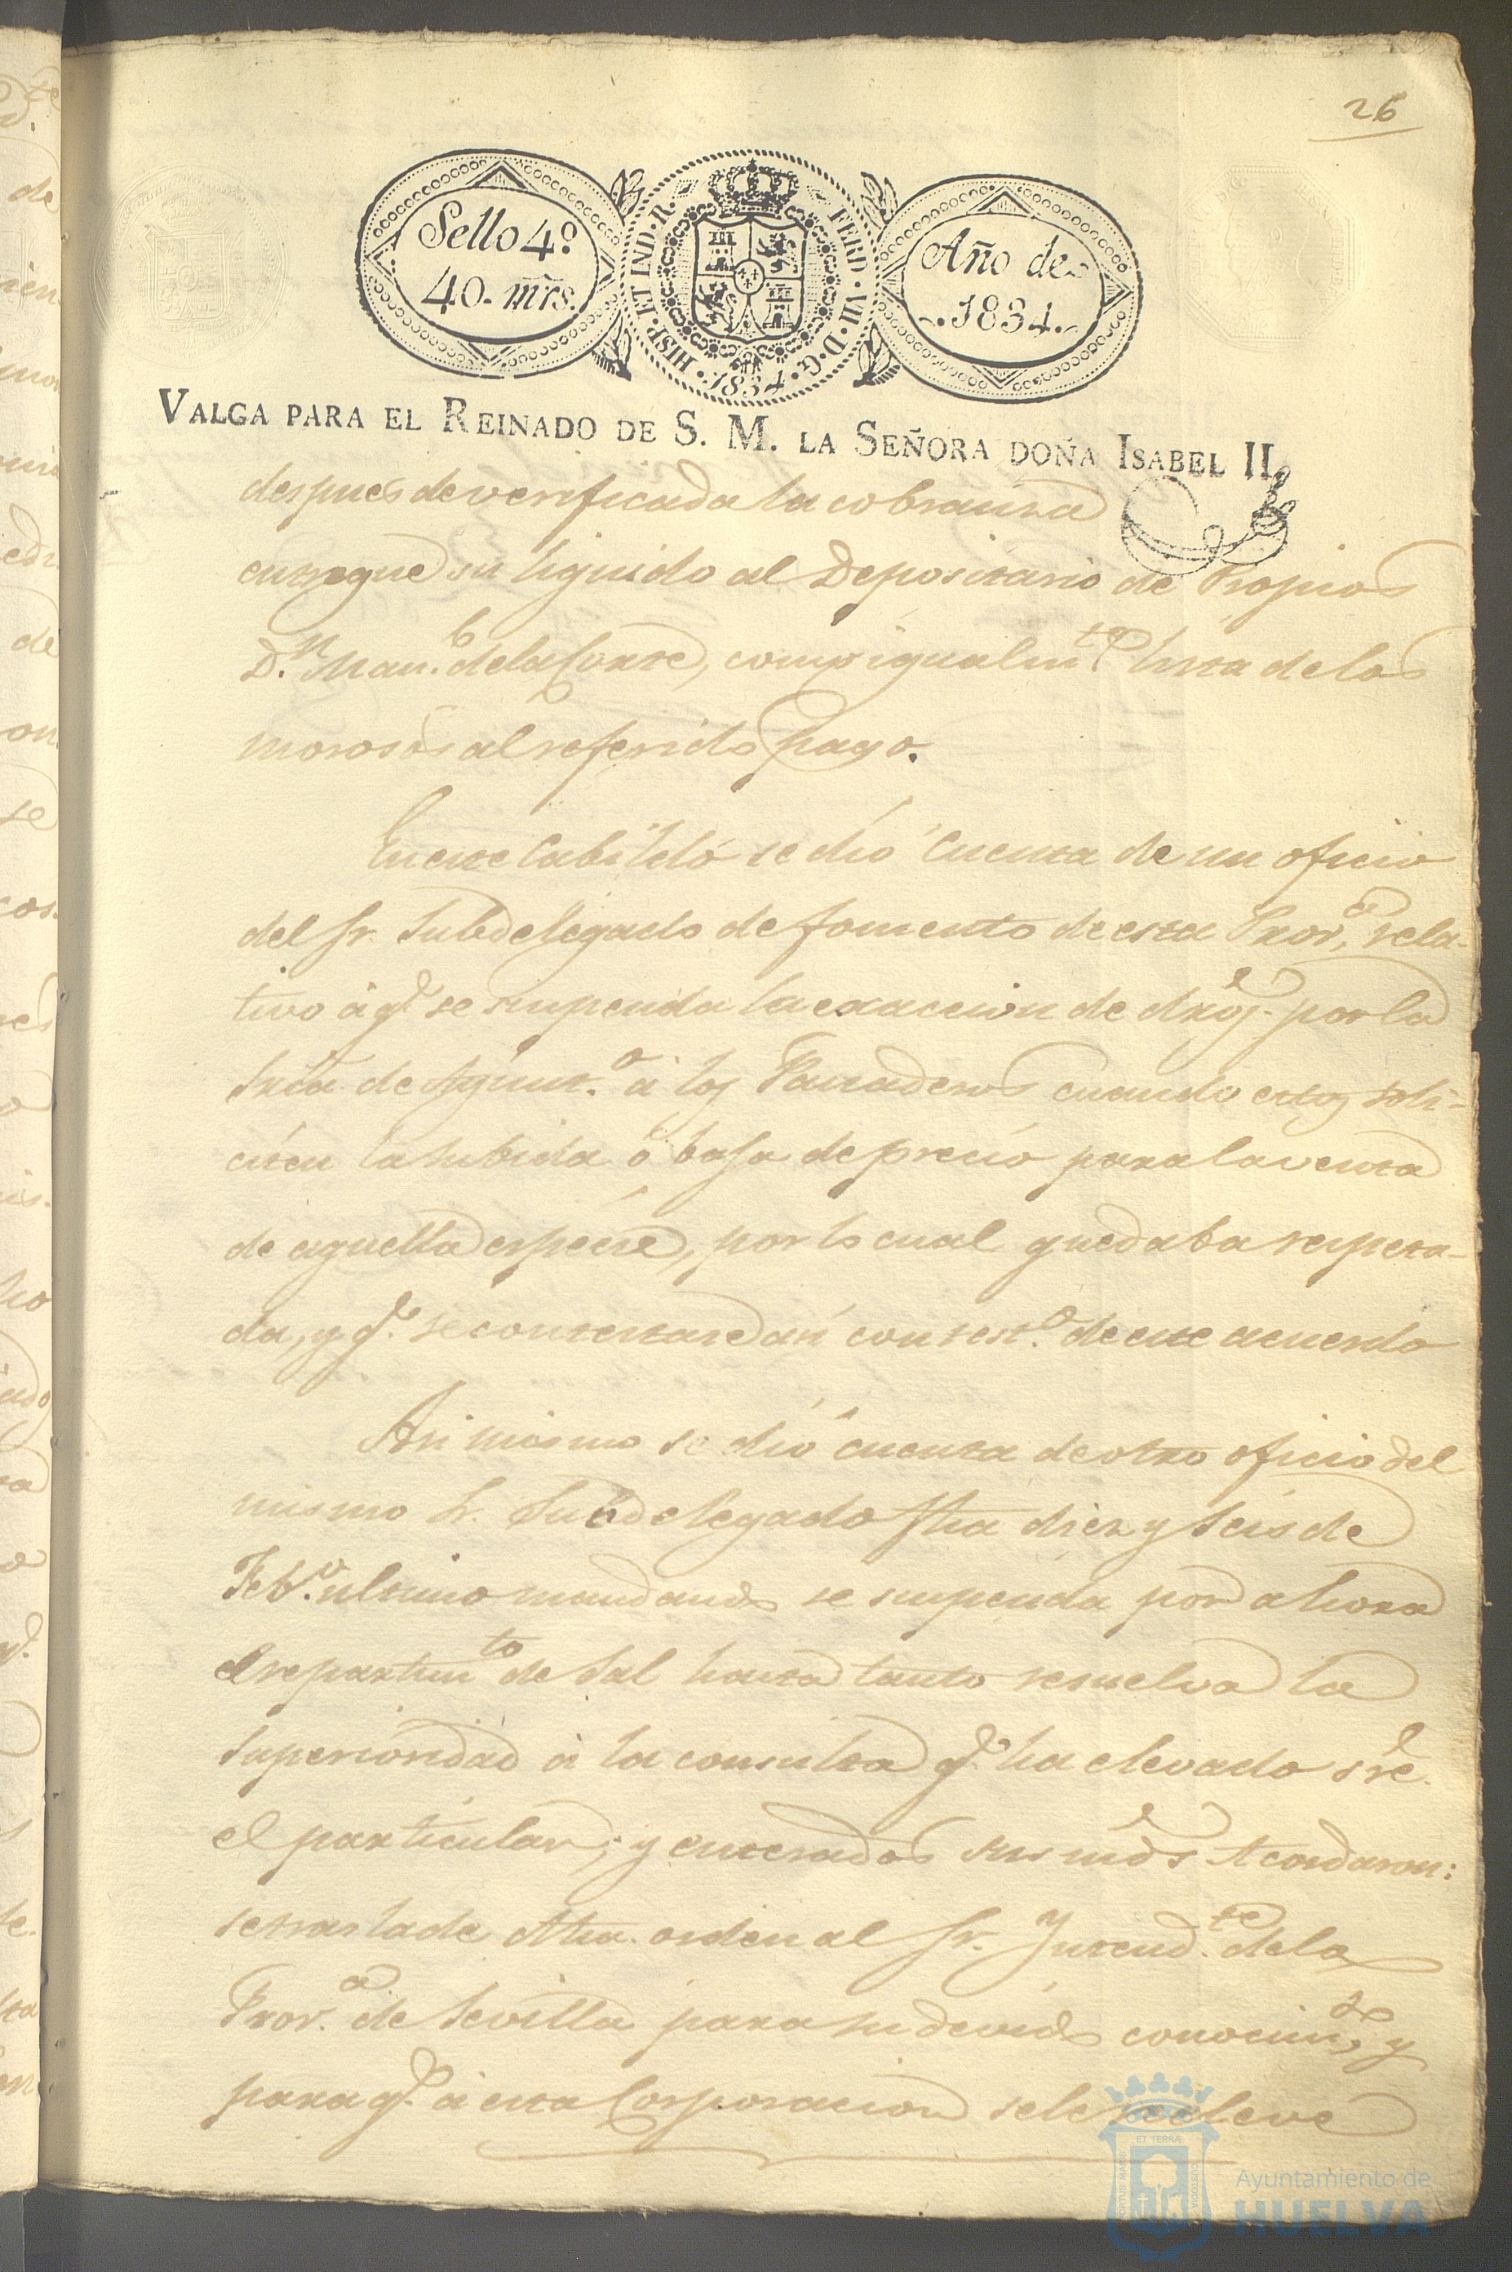 26
Sello 4º
40. mrs.
HISP. ET IND. R. FERD. VII. D. G. 1834.
Año de
1834.
VALGA PARA EL REINADO DE S. M. LA SEÑORA DOÑA ISABEL II.
despues de verificada la cobranza
entregue su liquido al Depositario de Propios
D.n Man.l de la Corte, como igualm.te lista de los
morosos al referido pago.
En este Cabildo se dió cuenta de un oficio
del Sr. Subdelegado de fomento de esta Prov.a rela-
tivo á q.e se suspenda la exaccion de dros. por la
Sria de Ayunt.o á los Panaderos cuando estos soli-
citen la subida ó baja de precio para la venta
de aquella especie, por lo cual quedaba respeta-
da, y q.e se contestase asi con test.o de este acuerdo
Asi mismo se dió cuenta de otro oficio del
mismo Sr. Subdelegado fha diez y seis de
Feb.o ultimo mandando se suspenda por ahora
el repartim.to de Sal hasta tanto resuelva la
Superioridad á la consulta q.e ha elevado sre.
el particular; y enterados sus mrds Acordaron:
se traslade dha. orden al Sr. Intend.te de la
Prov.a de Sevilla para su devido conocim.to, y
para q.e á esta Corporacion se le releve
ET TERRÆ
PORTUS MARIS
CUSTODIA
Ayuntamiento de
HUELVA